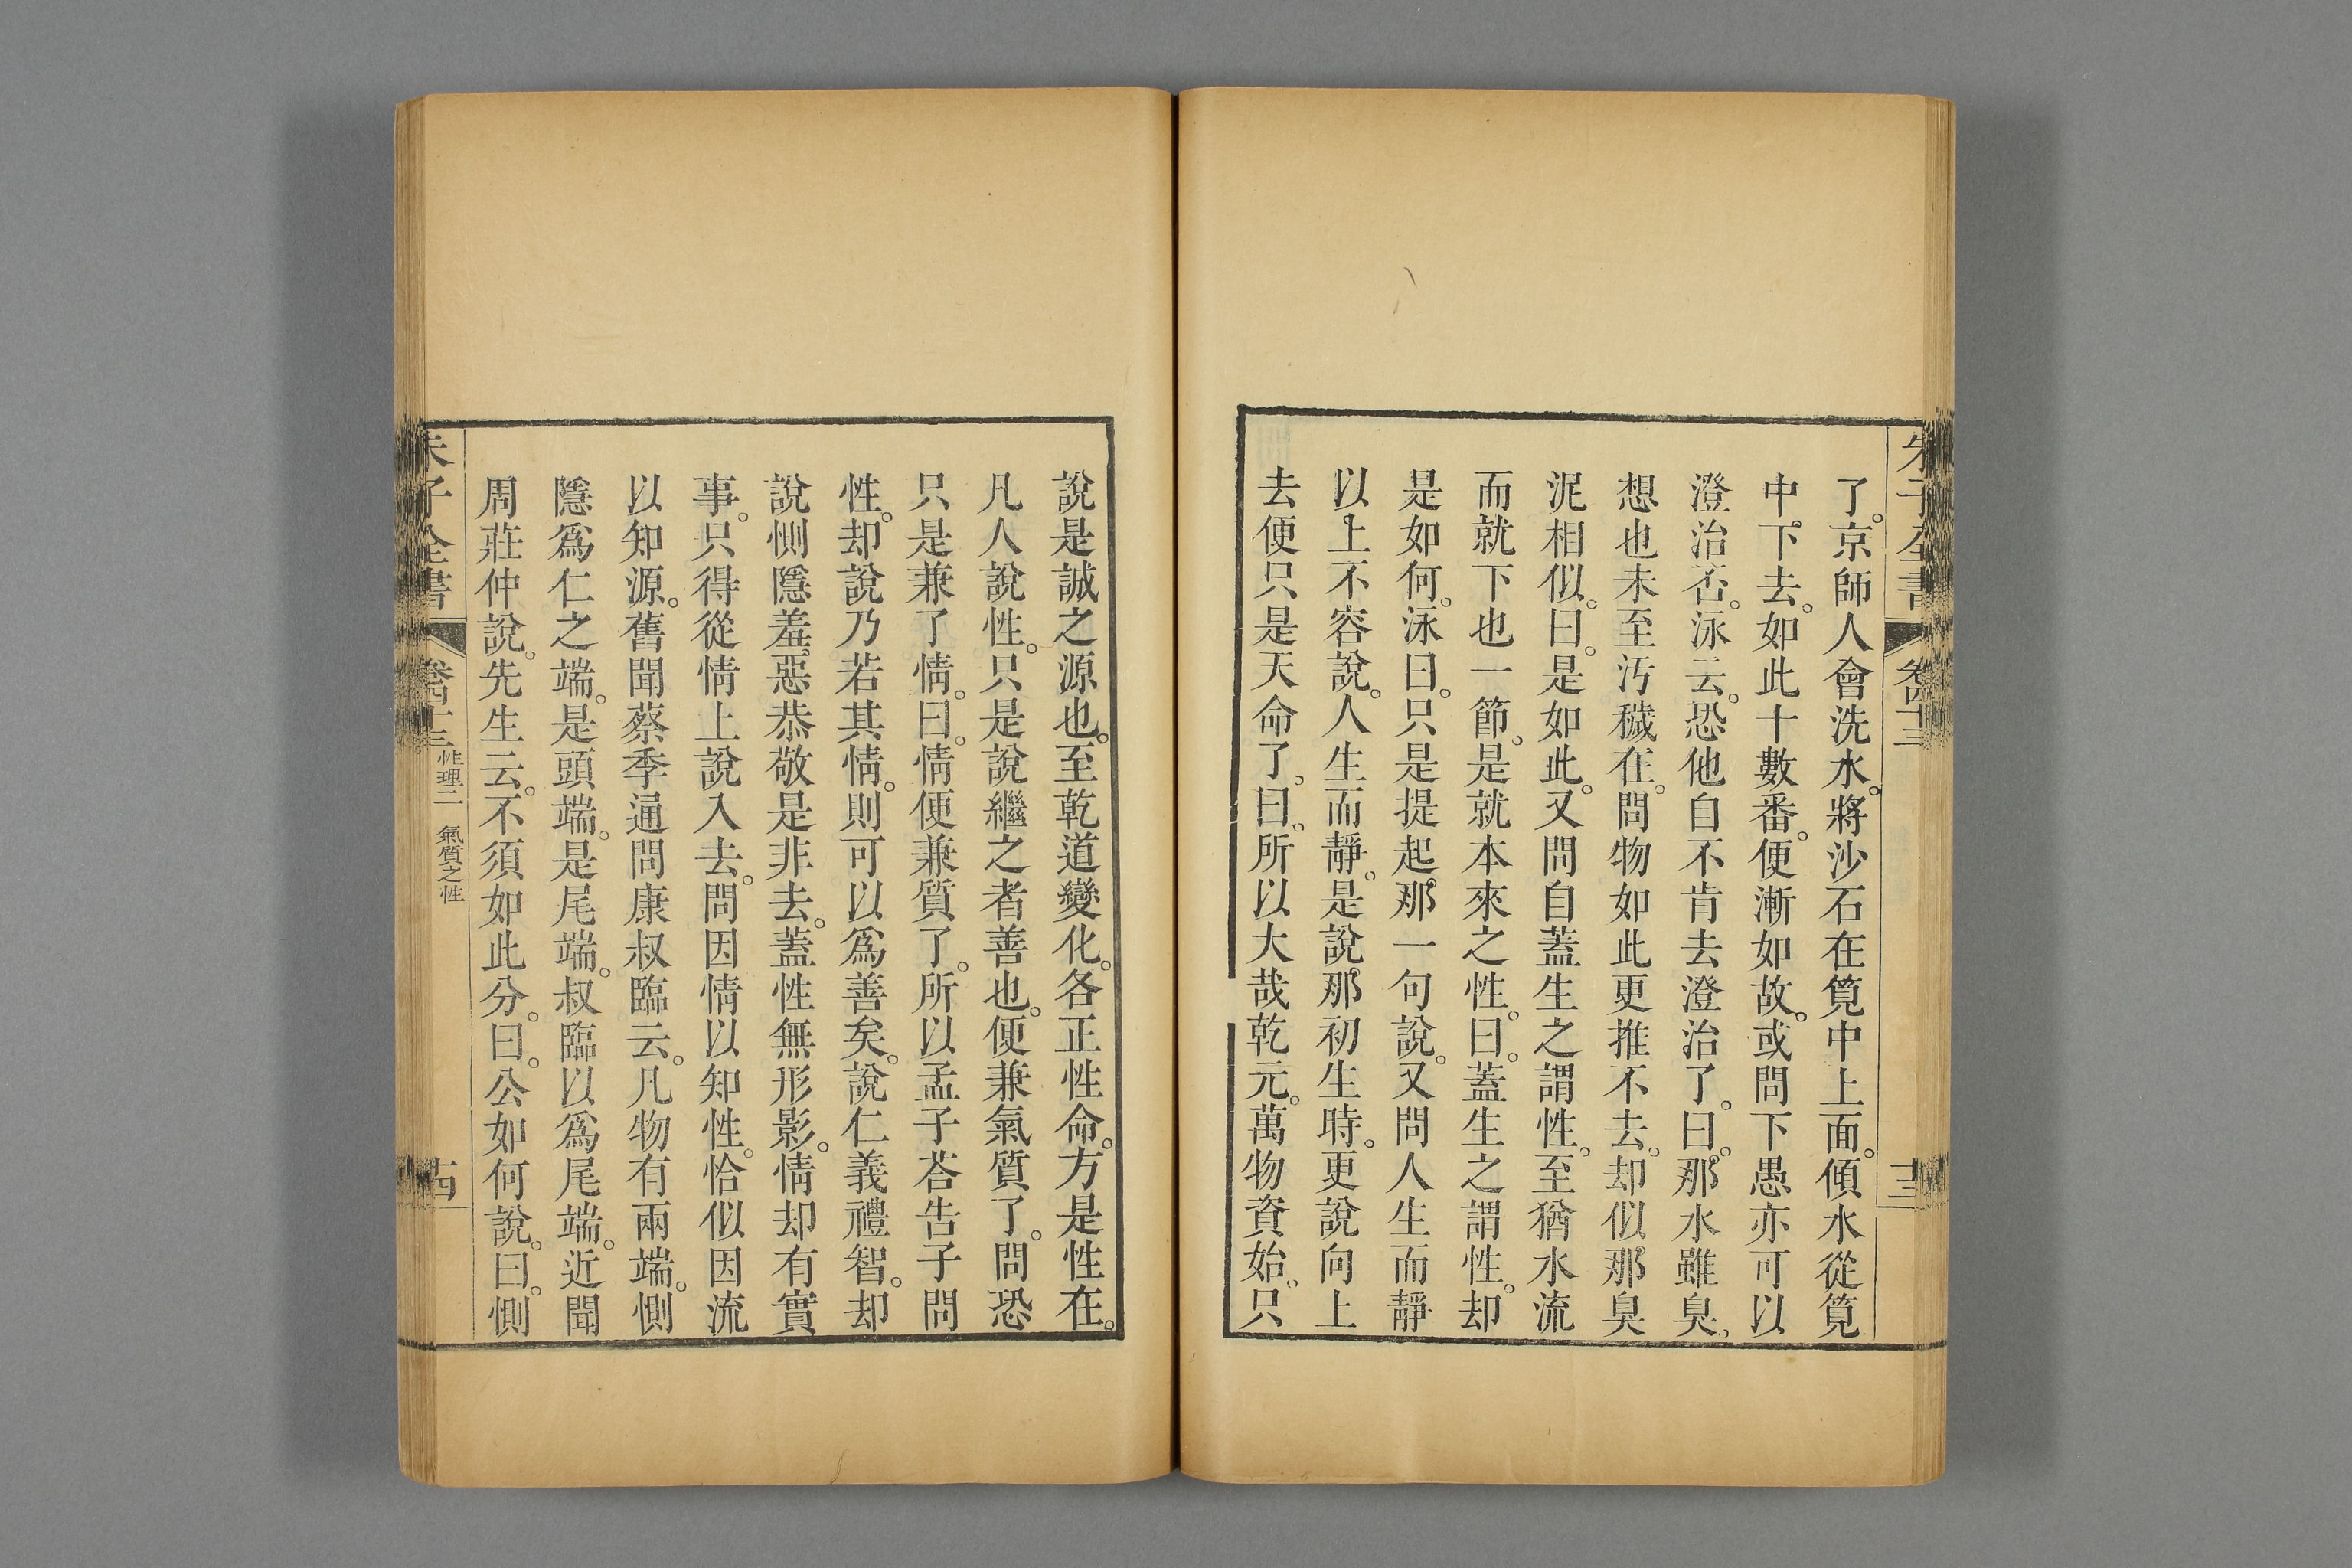 朱子全書 卷四十三 十三
了。京師人會洗水。將沙石在筧中上面。傾水從筧
中。下去。如此十數番。便漸如故。或問下愚亦可以
澄治否。泳云。恐他自不肯去澄治了。曰。那水雖臭。
想也未至汚穢在。問物如此更推不去。却似那臭
泥相似。曰。是如此。又問自蓋生之謂性。至猶水流
而就下也一節。是就本來之性。曰。蓋生之謂性。却
是如何。泳曰。只是提起那一句說。又問人生而靜
以上不容說。人生而靜。是說那初生時。更說向上
去便只是天命了。曰。所以大哉乾元。萬物資始。只
說是誠之源也。至乾道變化。各正性命。方是性在。
凡人說性。只是說繼之者善也。便兼氣質了。問恐
只是兼了情。曰。情便兼質了。所以孟子荅告子問
性。却說乃若其情。則可以爲善矣。說仁義禮智。却
說惻隱羞惡恭敬是非去。蓋性無形影。情却有實
事。只得從情上說入去。問因情以知性。恰似因流
以知源。舊聞蔡季通問康叔臨云。凡物有兩端。惻
隱爲仁之端。是頭端。是尾端。叔臨以爲尾端。近聞
周莊仲說。先生云。不須如此分。曰。公如何說。曰。惻
朱子全書 卷四十三 性理二 氣質之性 十四